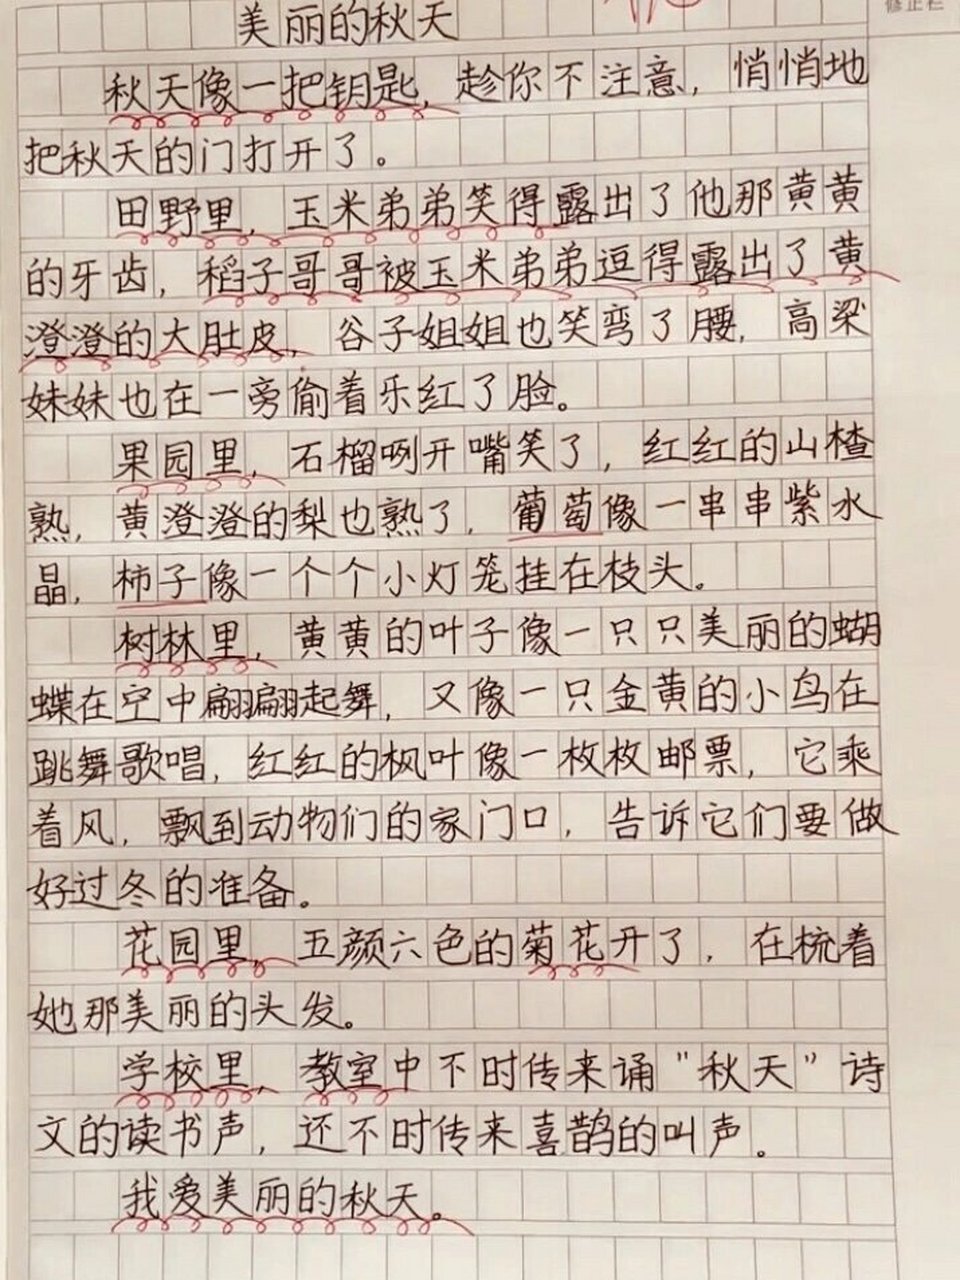 修正栏
美丽的秋天
秋天像一把钥匙，趁你不注意，悄悄地
把秋天的门打开了。
田野里，玉米弟弟笑得露出了他那黄黄
的牙齿，稻子哥哥被玉米弟弟逗得露出了黄
澄澄的大肚皮，谷子姐姐也笑弯了腰，高梁
妹妹也在一旁偷着乐红了脸。
果园里，石榴咧开嘴笑了，红红的山楂
熟，黄澄澄的梨也熟了，葡萄像一串串紫水
晶，柿子像一个个小灯笼挂在枝头。
树林里，黄黄的叶子像一只只美丽的蝴
蝶在空中翩翩起舞，又像一只金黄的小鸟在
跳舞歌唱，红红的枫叶像一枚枚邮票，它乘
着风，飘到动物们的家门口，告诉它们要做
好过冬的准备。
花园里，五颜六色的菊花开了，在梳着
她那美丽的头发。
学校里，教室中不时传来诵"秋天"诗
文的读书声，还不时传来喜鹊的叫声。
我爱美丽的秋天。